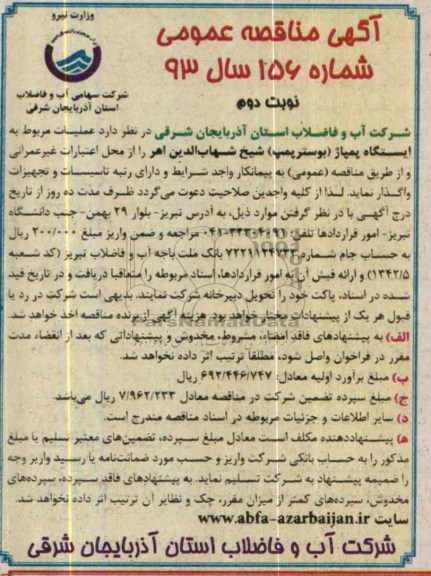 وزارت نیرو
شرکت سهامی آب و فاضلاب
استان آذربایجان شرقی
آگهی مناقصه عمومی
شماره ۱۵۶ سال ۹۳
نوبت دوم
شرکت آب و فاضلاب استان آذربایجان شرقی در نظر دارد عملیات مربوط به
ایستگاه پمپاژ (بوسترپمپ) شیخ شهاب‌الدین اهر را از محل اعتبارات غیرعمرانی
و از طریق مناقصه (عمومی) به پیمانکار واجد شرایط و دارای رتبه تاسیسات و تجهیزات
واگذار نماید. لذا از کلیه واجدین صلاحیت دعوت می‌گردد ظرف مدت ده روز از تاریخ
درج آگهی با در نظر گرفتن موارد ذیل، به آدرس تبریز- بلوار ۲۹ بهمن- جنب دانشگاه
تبریز- امور قراردادها تلفن مراجعه و ضمن واریز مبلغ ۲۰۰/۰۰۰ ریال
به حساب جام شماره بانک ملت باجه آب و فاضلاب تبریز (کد شعبه
۱۳۴۲/۵) و ارائه فیش آن به امور قراردادها، اسناد مربوطه را متعاقبا دریافت و در تاریخ قید
شده در اسناد، پاکت خود را تحویل دبیرخانه شرکت نمایند. بدیهی است شرکت در رد یا
قبول هر یک از پیشنهادات مختار خواهد بود. هزینه آگهی از برنده مناقصه اخذ خواهد شد.
الف) به پیشنهادهای فاقد امضاء، مشروط، مخدوش و پیشنهاداتی که بعد از انقضاء مدت
مقرر در فراخوان واصل شود، مطلقاً ترتیب اثر داده نخواهد شد.
ب) مبلغ برآورد اولیه معادل: ۶۹۲/۴۴۶/۷۴۷ ریال
ج) مبلغ سپرده تضمین شرکت در مناقصه معادل ۷/۹۶۲/۲۳۳ ریال می‌باشد.
د) سایر اطلاعات و جزئیات مربوطه در اسناد مناقصه مندرج است.
ه) پیشنهاددهنده مکلف است معادل مبلغ سپرده، تضمین‌های معتبر تسلیم یا مبلغ
مذکور را به حساب بانکی شرکت واریز و حسب مورد ضمانت‌نامه یا رسید واریز وجه
را ضمیمه پیشنهاد به شرکت تسلیم نماید. به پیشنهادهای فاقد سپرده، سپرده‌های
مخدوش، سپرده‌های کمتر از میزان مقرر، چک و نظایر آن ترتیب اثر داده نخواهد شد.
سایت www.abfa-azarbaijan.ir
شرکت آب و فاضلاب استان آذربایجان شرقی